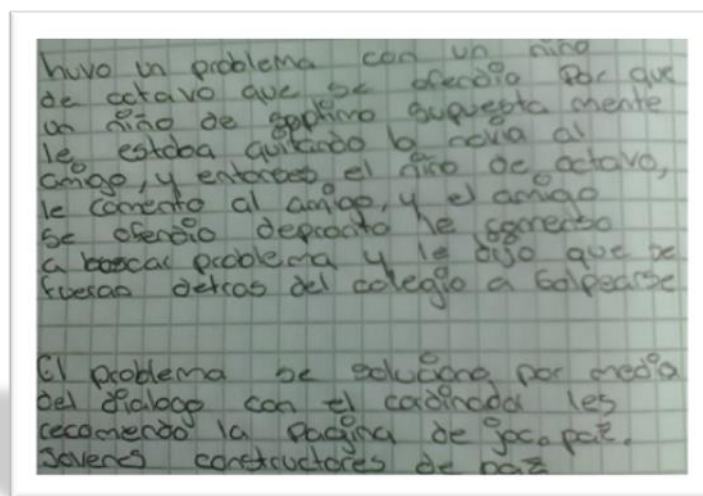 huvo un problema con un niño
de octavo que se ofendio Por que
un niño de septimo supuesta mente
le estaba quitando la novia al
amigo, y entonces el niño de octavo,
le comento al amigo, y el amigo
se ofendio deproato he comenso
a boscar problema y le dijo que se
fueran detras del colegio a Golpearse
El problema se soluciono por medio
del dialogo con el cordinador les
recomendo la Pagina de joco paz.
Jovenes constructores de paz